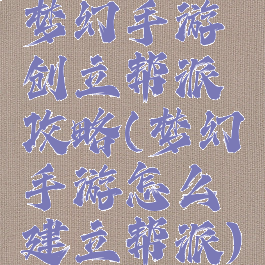 梦幻手游
创立帮派
攻略(梦幻
手游怎么
建立帮派)